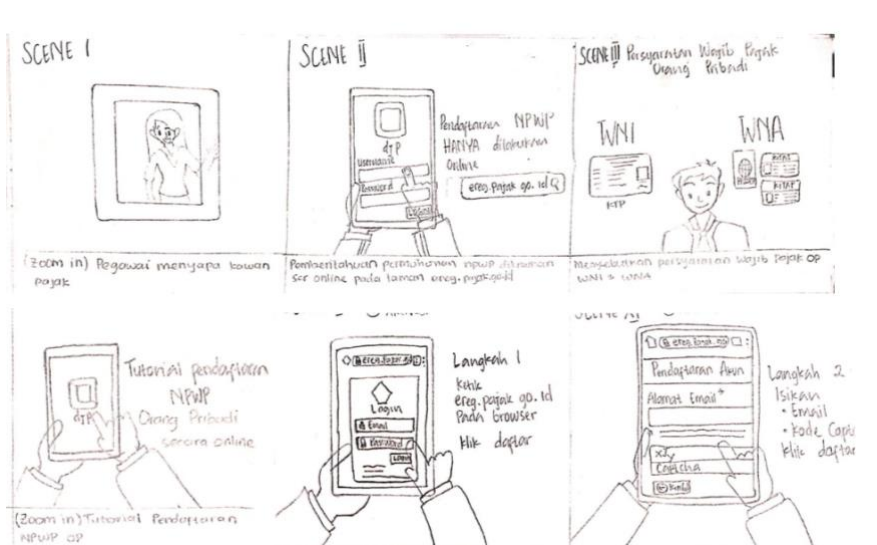 SCENE I
(Zoom in) Pegawai menyapa kawan
pajak
SCENE II
djp
username
Password
Login
Pendaftaran NPWP
HANYA dilakukan
Online
ereg.pajak.go.id
Pemberitahuan permohonan npwp dilakukan
scr online pada laman ereg.pajak.go.id
SCENE III Persyaratan Wajib Pajak
Orang Pribadi
WNI
KTP
WNA
KITAS
KITAP
Menjelaskan persyaratan wajib pajak OP
WNI & WNA
djp
Tutorial pendaftaran
NPWP
Orang Pribadi
secara online
(Zoom in) Tutorial Pendaftaran
NPWP OP
Login
Email
Password
Login
Langkah 1
Ketik
ereg.pajak.go.id
Pada browser
klik daftar
Pendaftaran Akun
Alamat Email*
Captcha
Langkah 2
Isikan
• Email
• Kode Captc
klik daftar